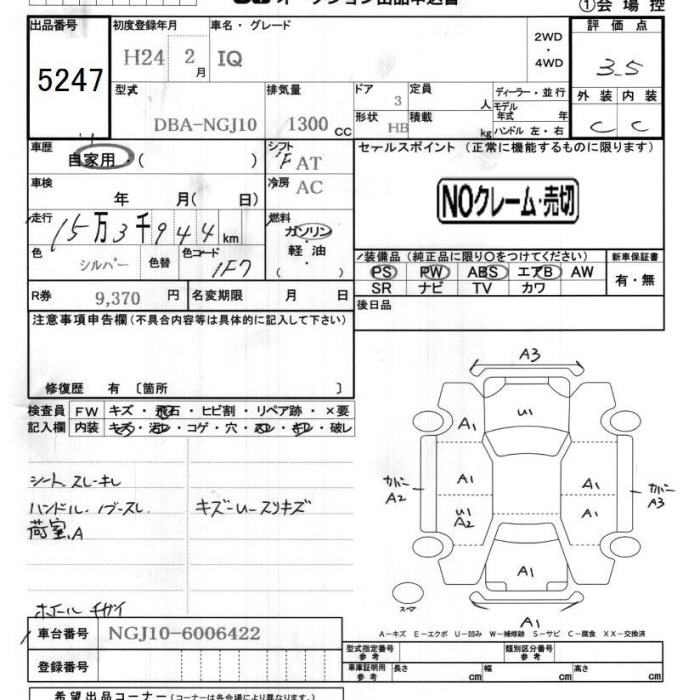 オークション出品申込書
①会場控
出品番号 5247
初度登録年月 H24 2月
車名・グレード IQ
2WD・4WD
評価点 3.5
型式 DBA-NGJ10
排気量 1300CC
ドア 3
形状 HB
定員 人
積載 kg
ディーラー・並行
モデル年式 年
ハンドル 左・右
外装 内装
C C
車歴 自家用・( )
シフト F AT
セールスポイント (正常に機能するものに限ります)
車検 年 月(日)
冷房 AC
NOクレーム・売切
走行 15万3千944km
燃料 ガソリン・軽油 ( )
色 シルバー 色替 色コード 1F7
装備品 (純正品に限り○をつけてください)
PS PW ABS エアB AW
SR ナビ TV カワ
新車保証書
有・無
R券 9,370円 名変期限 月 日
後日品
注意事項申告欄 (不具合内容等は具体的に記入して下さい)
修復歴 有 〔箇所 〕
検査員記入欄
FW キズ・飛石・ヒビ割・リペア跡・×要
内装 キズ・汚レ・コゲ・穴・スレ・キレ・破レ
シート スレ キレ
ハンドル・ノブースレ
荷室.A
キズーUースリキズ
ホイール チガイ
A3
U1
A1
カバー A2
A1
U1 A2
A1
A1
カバー A3
A1
スペア
A1
A-キズ E-エクボ U-凹み W-補修跡 S-サビ C-腐食 XX-交換済
車台番号 NGJ10-6006422
登録番号
型式指定番号 参考
類別区分番号 参考
車庫証明用 参考 長さ cm 幅 cm 高さ cm
希望出品コーナー (コーナーは各会場により異なります)